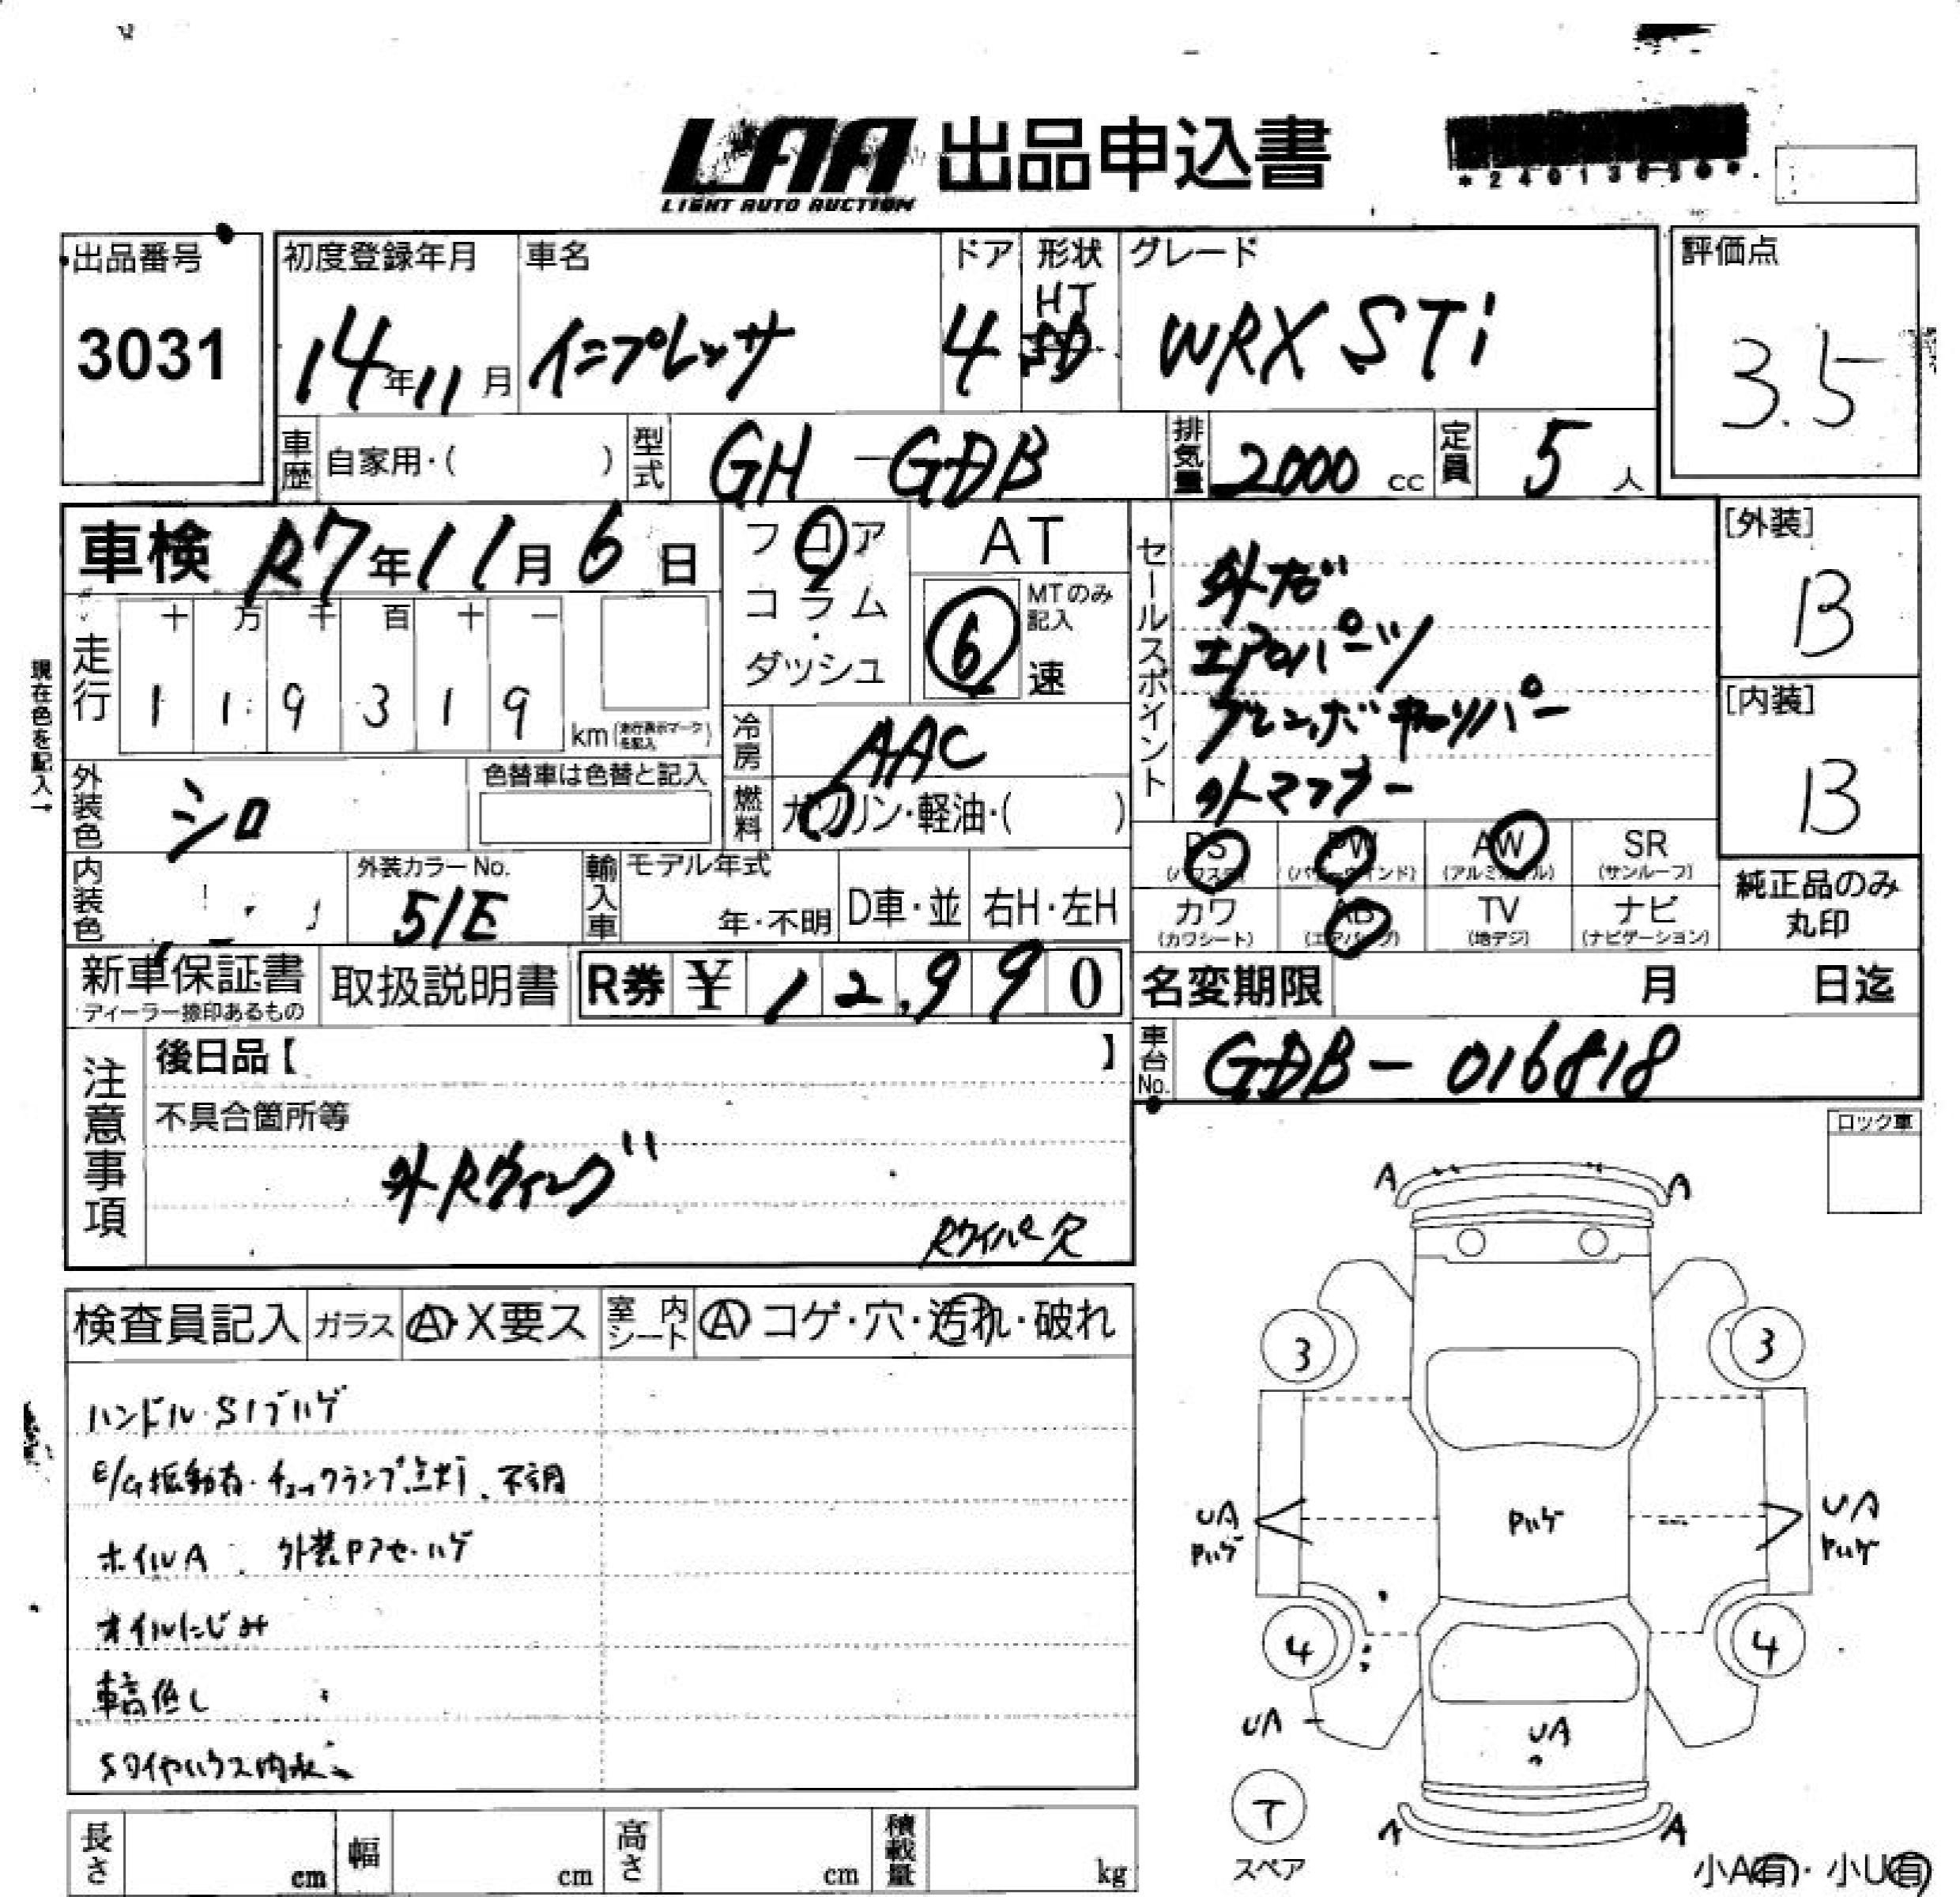 LAA 出品申込書
LIGHT AUTO AUCTION
出品番号
3031
初度登録年月
14年11月
車名
インプレッサ
ドア
4
形状
HT
グレード
WRX STi
評価点
3.5
車歴 自家用・( )
型式 GH-GDB
排気量 2000 cc
定員 5 人
車検 R7年11月6日
フロア
コラム
・
ダッシュ
AT
MTのみ記入
6 速
走行
十 万 千 百 十 一
1 1 9 3 1 9
km(走行表示マークを記入)
現在色を記入→
冷房 AAC
外装色 シロ
色替車は色替と記入
燃料 ガソリン・軽油・( )
内装色
外装カラーNo.
51E
輸入車
モデル年式
年・不明
D車・並
右H・左H
セールスポイント
外ナビ
エアロパーツ
ブレンボキャリパー
外マフラー
[外装]
B
[内装]
B
PS (パワステ)
PW (パワーウインド)
AW (アルミホイル)
SR (サンルーフ)
カワ (カワシート)
AB (エアバッグ)
TV (地デジ)
ナビ (ナビゲーション)
純正品のみ
丸印
新車保証書
ディーラー捺印あるもの
取扱説明書
R券 ¥ 12,990
名変期限 月 日迄
車台No. GDB-016818
注意事項
後日品【 】
不具合箇所等
外Rウィング
Rワイパー欠
ロック車
検査員記入
ガラス
A・X要ス
室内シート
A コゲ・穴・汚れ・破れ
ハンドル・SIプハゲ
E/G振動有・チェックランプ点灯、不調
ホイルA 外装Pアセ・ハゲ
オイルにじみ
車高低し
A
A
3
3
UA
Pハゲ
Pハゲ
UA
Pハゲ
4
4
UA
UA
T
スペア
A
A
小A有・小U有
長さ cm
幅 cm
高さ cm
積載量 kg